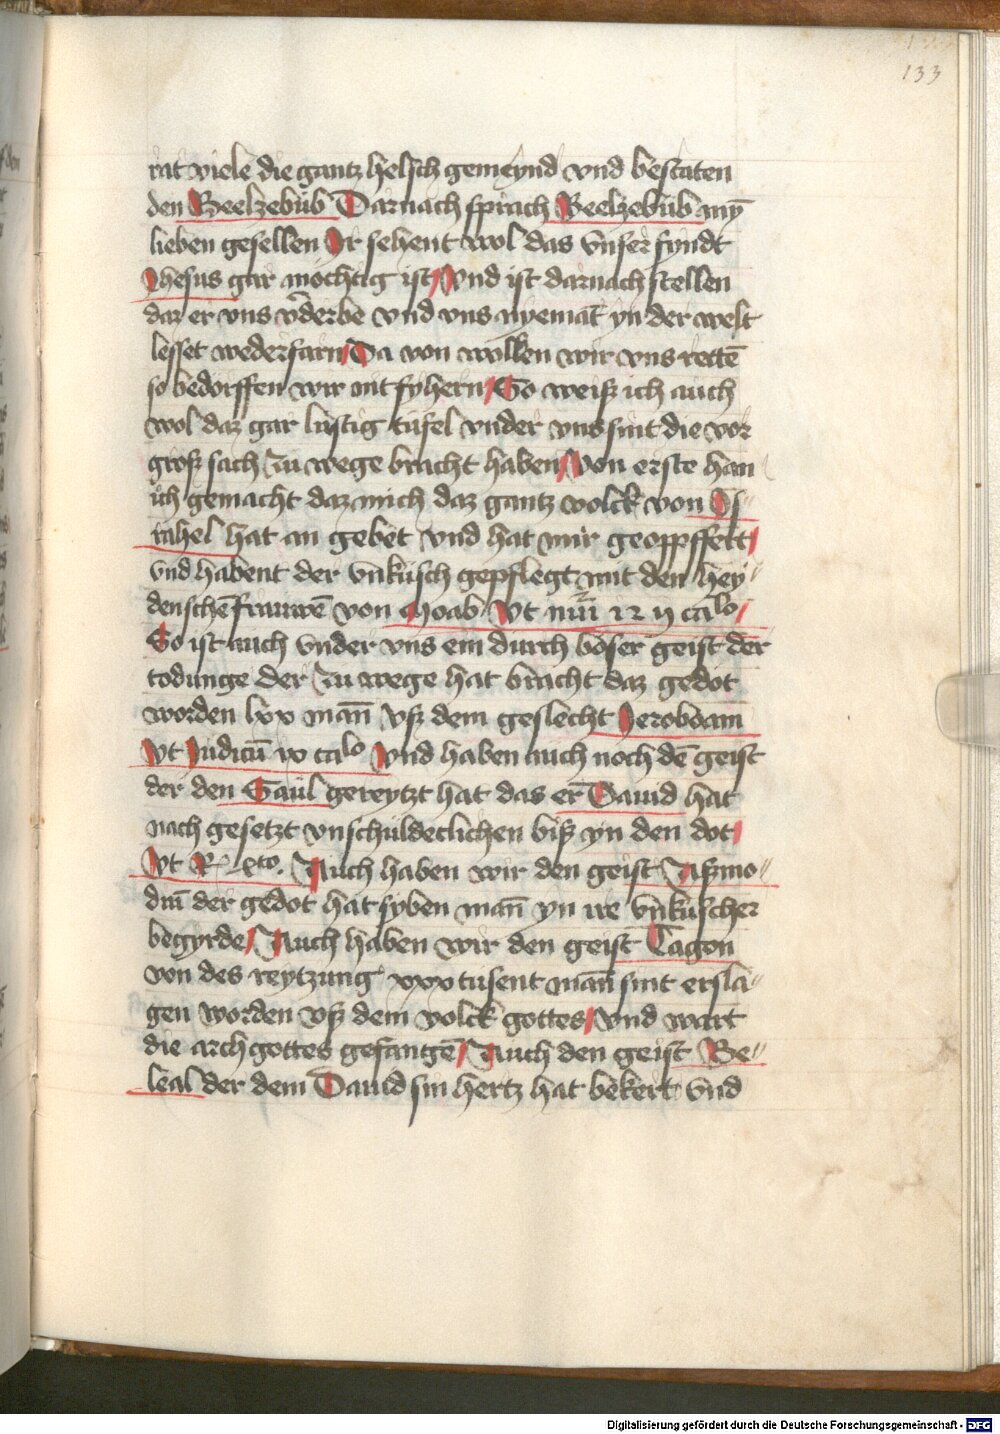 133
rat viele die gantz helsch gemeynd vnd bestaten
den Beelzebub Darnach sprach Beelzebub myn̄
lieben gesellen Ir sehent wol das vnser fyndt
Jhesus gar mochtig ist Vnd ist darnach stellen
daz er vns v̄derbe vnd vns nyemāt yn der welt
lesset wederfarn Da von wollen wir vns rettē
so bedorffen wir nit fyhern So weiß ich auch
wol daz gar lustig tufel vnder vns sint die vor
groß sach zu wege bracht haben Von erste han
ich gemacht daz mich daz gantz volck von Is〃
rahel hat an gebet vnd hat mir geoppffert
vnd habent der vnkusch gepflegt mit den hey〃
denschē frauwē von Moab Vt nūi calo
So ist auch vnder vns ein durch boser geist der
todunge der zu wege hat bracht daz gedot
worden lxx man̄ vß dem geslecht Jeroboam
Vt Judicū ix calo Vnd haben auch noch dē geist
der den Saul gereytzt hat das er Dauid hat
nach gesetzt vnschuldeclichen biß yn den dot
Vt Auch haben wir den geist Aßmo〃
diū der gedot hat syben man̄ yn ire vnkuscher
begyrde Auch haben wir den geist Tagon
von des reytzung xxx tusent man̄ sint ersla〃
gen worden vß dem volck gottes Vnd wart
die arch gottes gefangē Auch den geist Be〃
leal der dem Dauid sin hertz hat bekert vnd
Digitalisierung gefördert durch die Deutsche Forschungsgemeinschaft - DFG